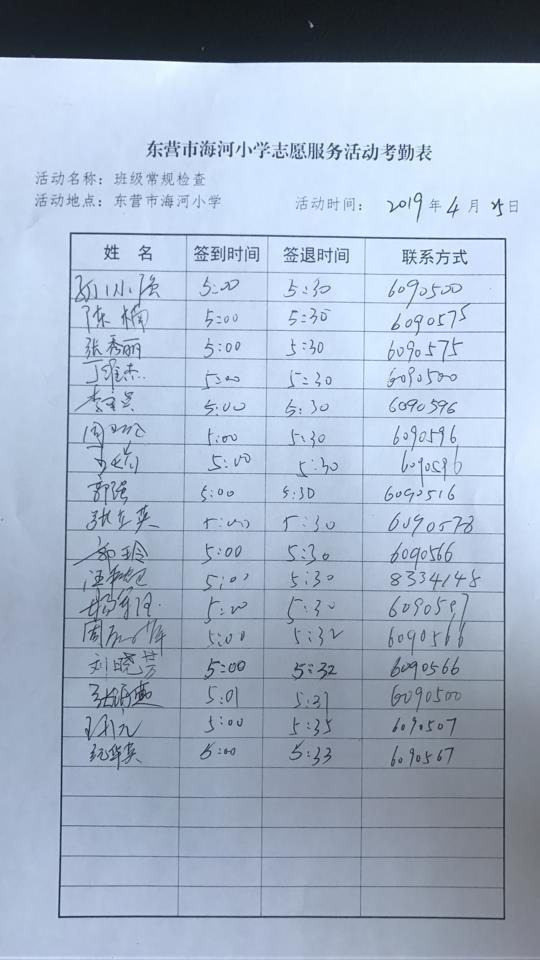 东营市海河小学志愿服务活动考勤表
活动名称：班级常规检查
活动地点：东营市海河小学 活动时间： 2019 年 4 月 25 日
姓 名 签到时间 签退时间 联系方式
小强 5:00 5:30 6090500
陈楠 5:00 5:30 6090575
张秀丽 5:00 5:30 6090575
丁维杰 5:00 5:30 6090500
李 5:00 5:30 6090596
周 5:00 5:30 6090596
5:00 5:30 6090596
郭强 5:00 5:30 6090516
张立英 5:00 5:30 6090578
郭玲 5:00 5:30 6090566
汪 5:00 5:30 8334145
杨 5:20 5:30 6090597
周 5:00 5:32 6090566
刘晓芳 5:00 5:32 6090566
张 5:01 5:31 6090500
5:00 5:35 6090507
5:00 5:33 6090567